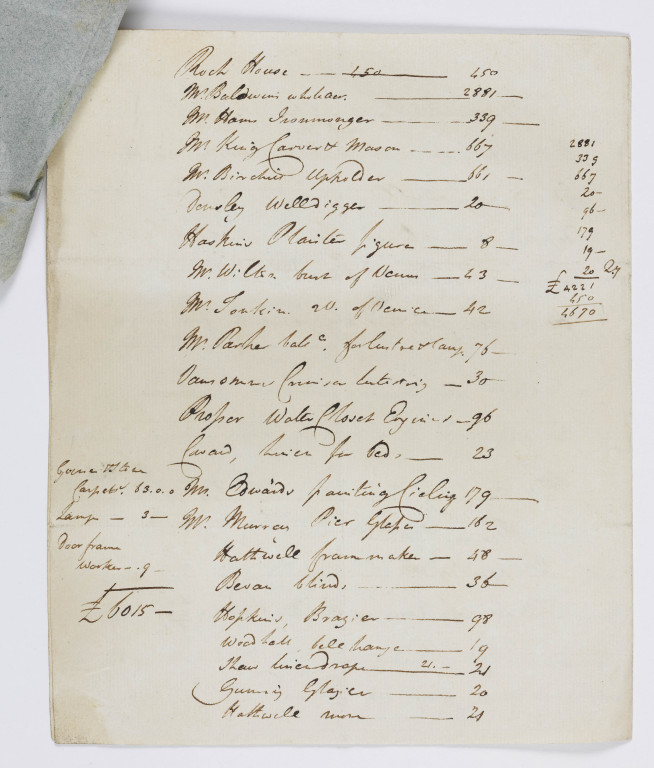 Rock House — 150 — 450
Mr. Baldwin — 2881 —
Mr. Hams Ironmonger — 339 —
Mr. King Carver & Mason — 667
Mr. Birchill Upholder — 661 —
Densley Welldigger — 20
Haskins Plaister figure — 8 —
Mr. Wilton bust of Venus — 43 —
Mr. Do. of Venice — 42
Mr. Parker for lustre & lamp 76 —
Vansommer Crimson — 30
Prosser Water Closet Engines — 96
Coward, linen for beds — 23
Mr. Edwards painting Cieling 179 —
Mr. Murray Pier Glasses — 162
Hathwell frame maker — 48 —
Bevan blinds — 36
Hopkins, Brazier — 98
Woodhall bell hanger — 19
Shaw linendraper — 21. — 21
Gunning Glazier — 20
Hathwell more — 21
2881
339
667
20 —
96 —
179
19 —
20
£ 4221
450
4670
Carpetr. 63.0.0
Lamp — 3 —
Door frame
Worker — . 9 —
£6015 —